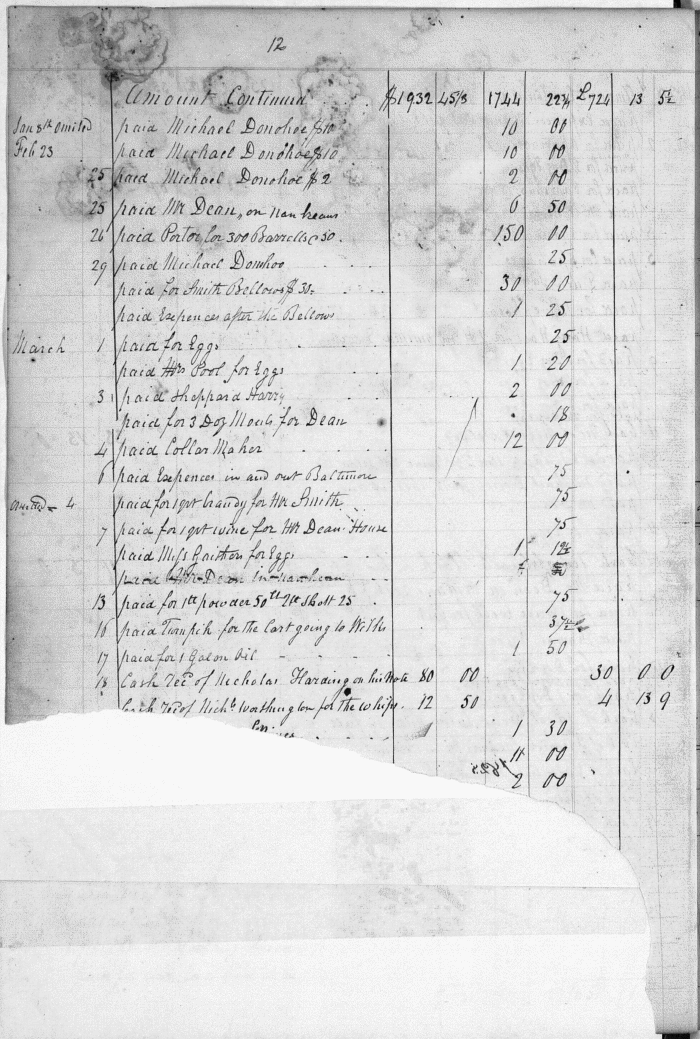 12
Amount Continued $1932 45 1/8 1744 22 3/4 £724 13 5 1/2
Jan 8th omited paid Michael Donohoe $10 10 00
Feb 23 paid Michael Donohoe $10 10 00
25 paid Michael Donohoe $2 2 00
25 paid Mr Dean, on 6 50
26 paid Porter for 300 Barrells @ 50 . 150 00
29 paid Michael Donohoo 25
paid for Smith Bellows $30 30 00
paid Expences after the Bellows 1 25
March 1 paid for Eggs 25
paid Mrs Pool for Eggs 1 20
3 paid Sheppard Harry 2 00
paid for 3 Doz for Dean 18
4 paid Collar Maker 12 00
6 paid Expences in and out Baltimore 75
omited 4 paid for 1 qrt brandy for Mr Smith 75
7 paid for 1 qrt wine for Mr Dean House 75
paid Miss Gaither for Eggs 1 12 1/2
paid Mr Dean in
13 paid for 1 lb powder 50 lb Shott 25 75
16 paid Turnpik for the Cart going to 37 1/2
17 paid for 1 Galon Oil 1 50
18 Cash recd of Nicholas Harding on his Note 80 00 30 0 0
Cash recd of Nichs Worthington for the whips 12 50 4 13 9
1 30
11 00
2 00